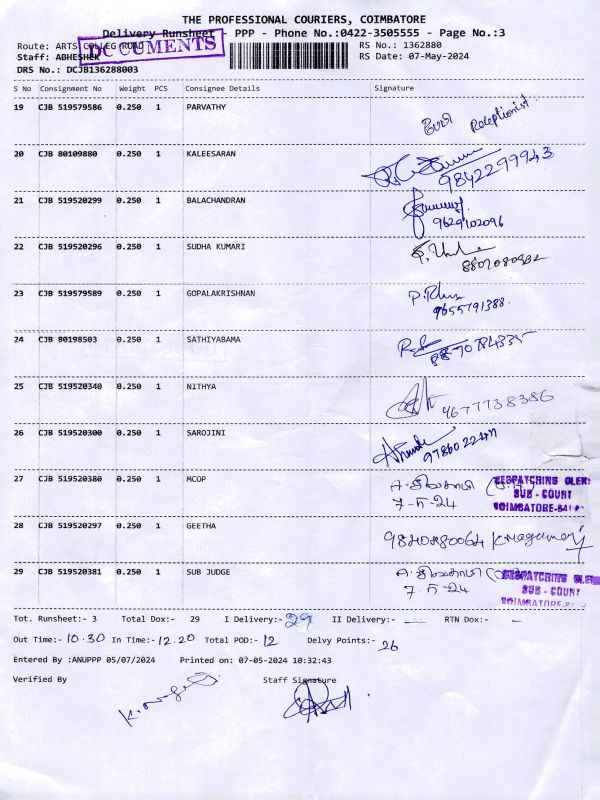 THE PROFESSIONAL COURIERS, COIMBATORE
Delivery Runsheet - PPP - Phone No.:0422-3505555 - Page No.:3
Route: ARTS COLLEG ROAD RS No.: 1362880
DOCUMENTS
Staff: ABHESHEK RS Date: 07-May-2024
DRS No.: DCJB136288003
S No Consignment No Weight PCS Consignee Details Signature
19 CJB 519579586 0.250 1 PARVATHY
Receptionist.
20 CJB 80109880 0.250 1 KALEESARAN
9842299943
21 CJB 519520299 0.250 1 BALACHANDRAN
9629102096
22 CJB 519520296 0.250 1 SUDHA KUMARI
23 CJB 519579589 0.250 1 GOPALAKRISHNAN
9655791388.
24 CJB 80198503 0.250 1 SATHIYABAMA
25 CJB 519520340 0.250 1 NITHYA
9677738386
26 CJB 519520300 0.250 1 SAROJINI
27 CJB 519520380 0.250 1 MCOP
DESPATCHING CLERK
SUB - COURT
7-5-24 COIMBATORE-641
28 CJB 519520297 0.250 1 GEETHA
29 CJB 519520381 0.250 1 SUB JUDGE
DESPATCHING CLERK
7.5.24 SUB - COURT
COIMBATORE
Tot. Runsheet:- 3 Total Dox:- 29 I Delivery:- 29 II Delivery:- — RTN Dox:- -
Out Time:- 10.30 In Time:- 12.20 Total POD:- 12 Delvy Points:- 26
Entered By :ANUPPP 05/07/2024 Printed on: 07-05-2024 10:32:43
Verified By Staff Signature